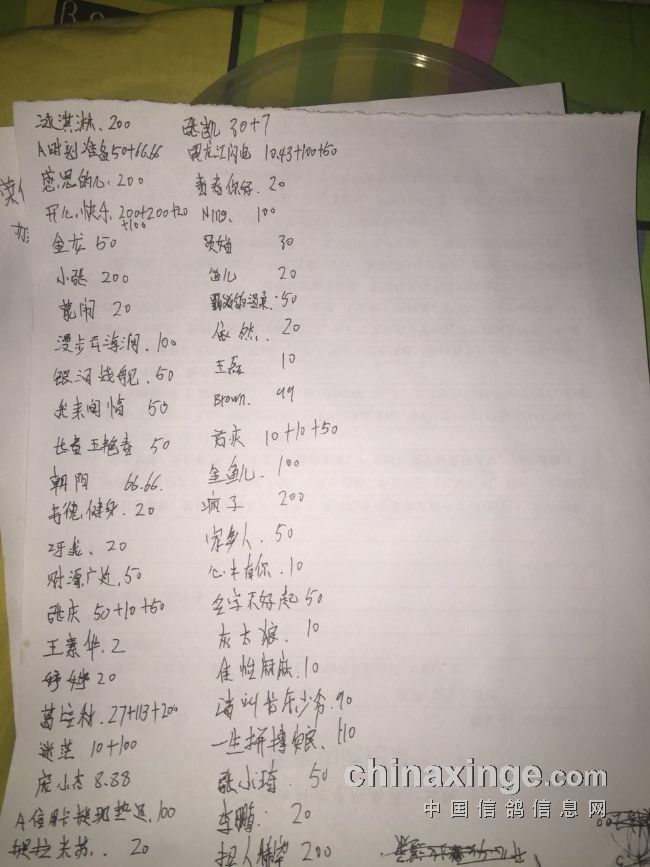 冰淇淋、200
A时刻准备50+66.66
感恩的心.200
开心快乐.200+200+20
+100
金龙 50
小张 200
20
漫步云海涧.100
银河战舰.50
我来问情 50
长春王艳春 50
朝阳 66.66.
尚德.健身.20
20
财源广进.50
张庆 50+10+50
王素华.2
婷婷 20
葛 27+113+200
迷茫 10+100
庞小杰 8.88
A信用卡 100
20
张凯 30+7
黑龙江闪电 10.43+100+50
你好.20
Ning、 100
30
鱼儿 20
的温柔.50
依然、 20
王磊 10
Brown. 99
10+10+50
金鱼儿. 100
疯子 200
家乡人. 50
心中有你.10
名字不好起 50
灰太狼、 10
佳 麻麻.10
请叫 乐少爷.90
一生拼搏 110
张小琦. 50
李鹏. 20
200
chinaxinge.com
中国信鸽信息网